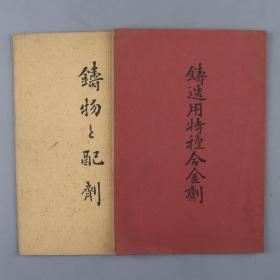 鑄造用特種合金劑
鑄物と配劑